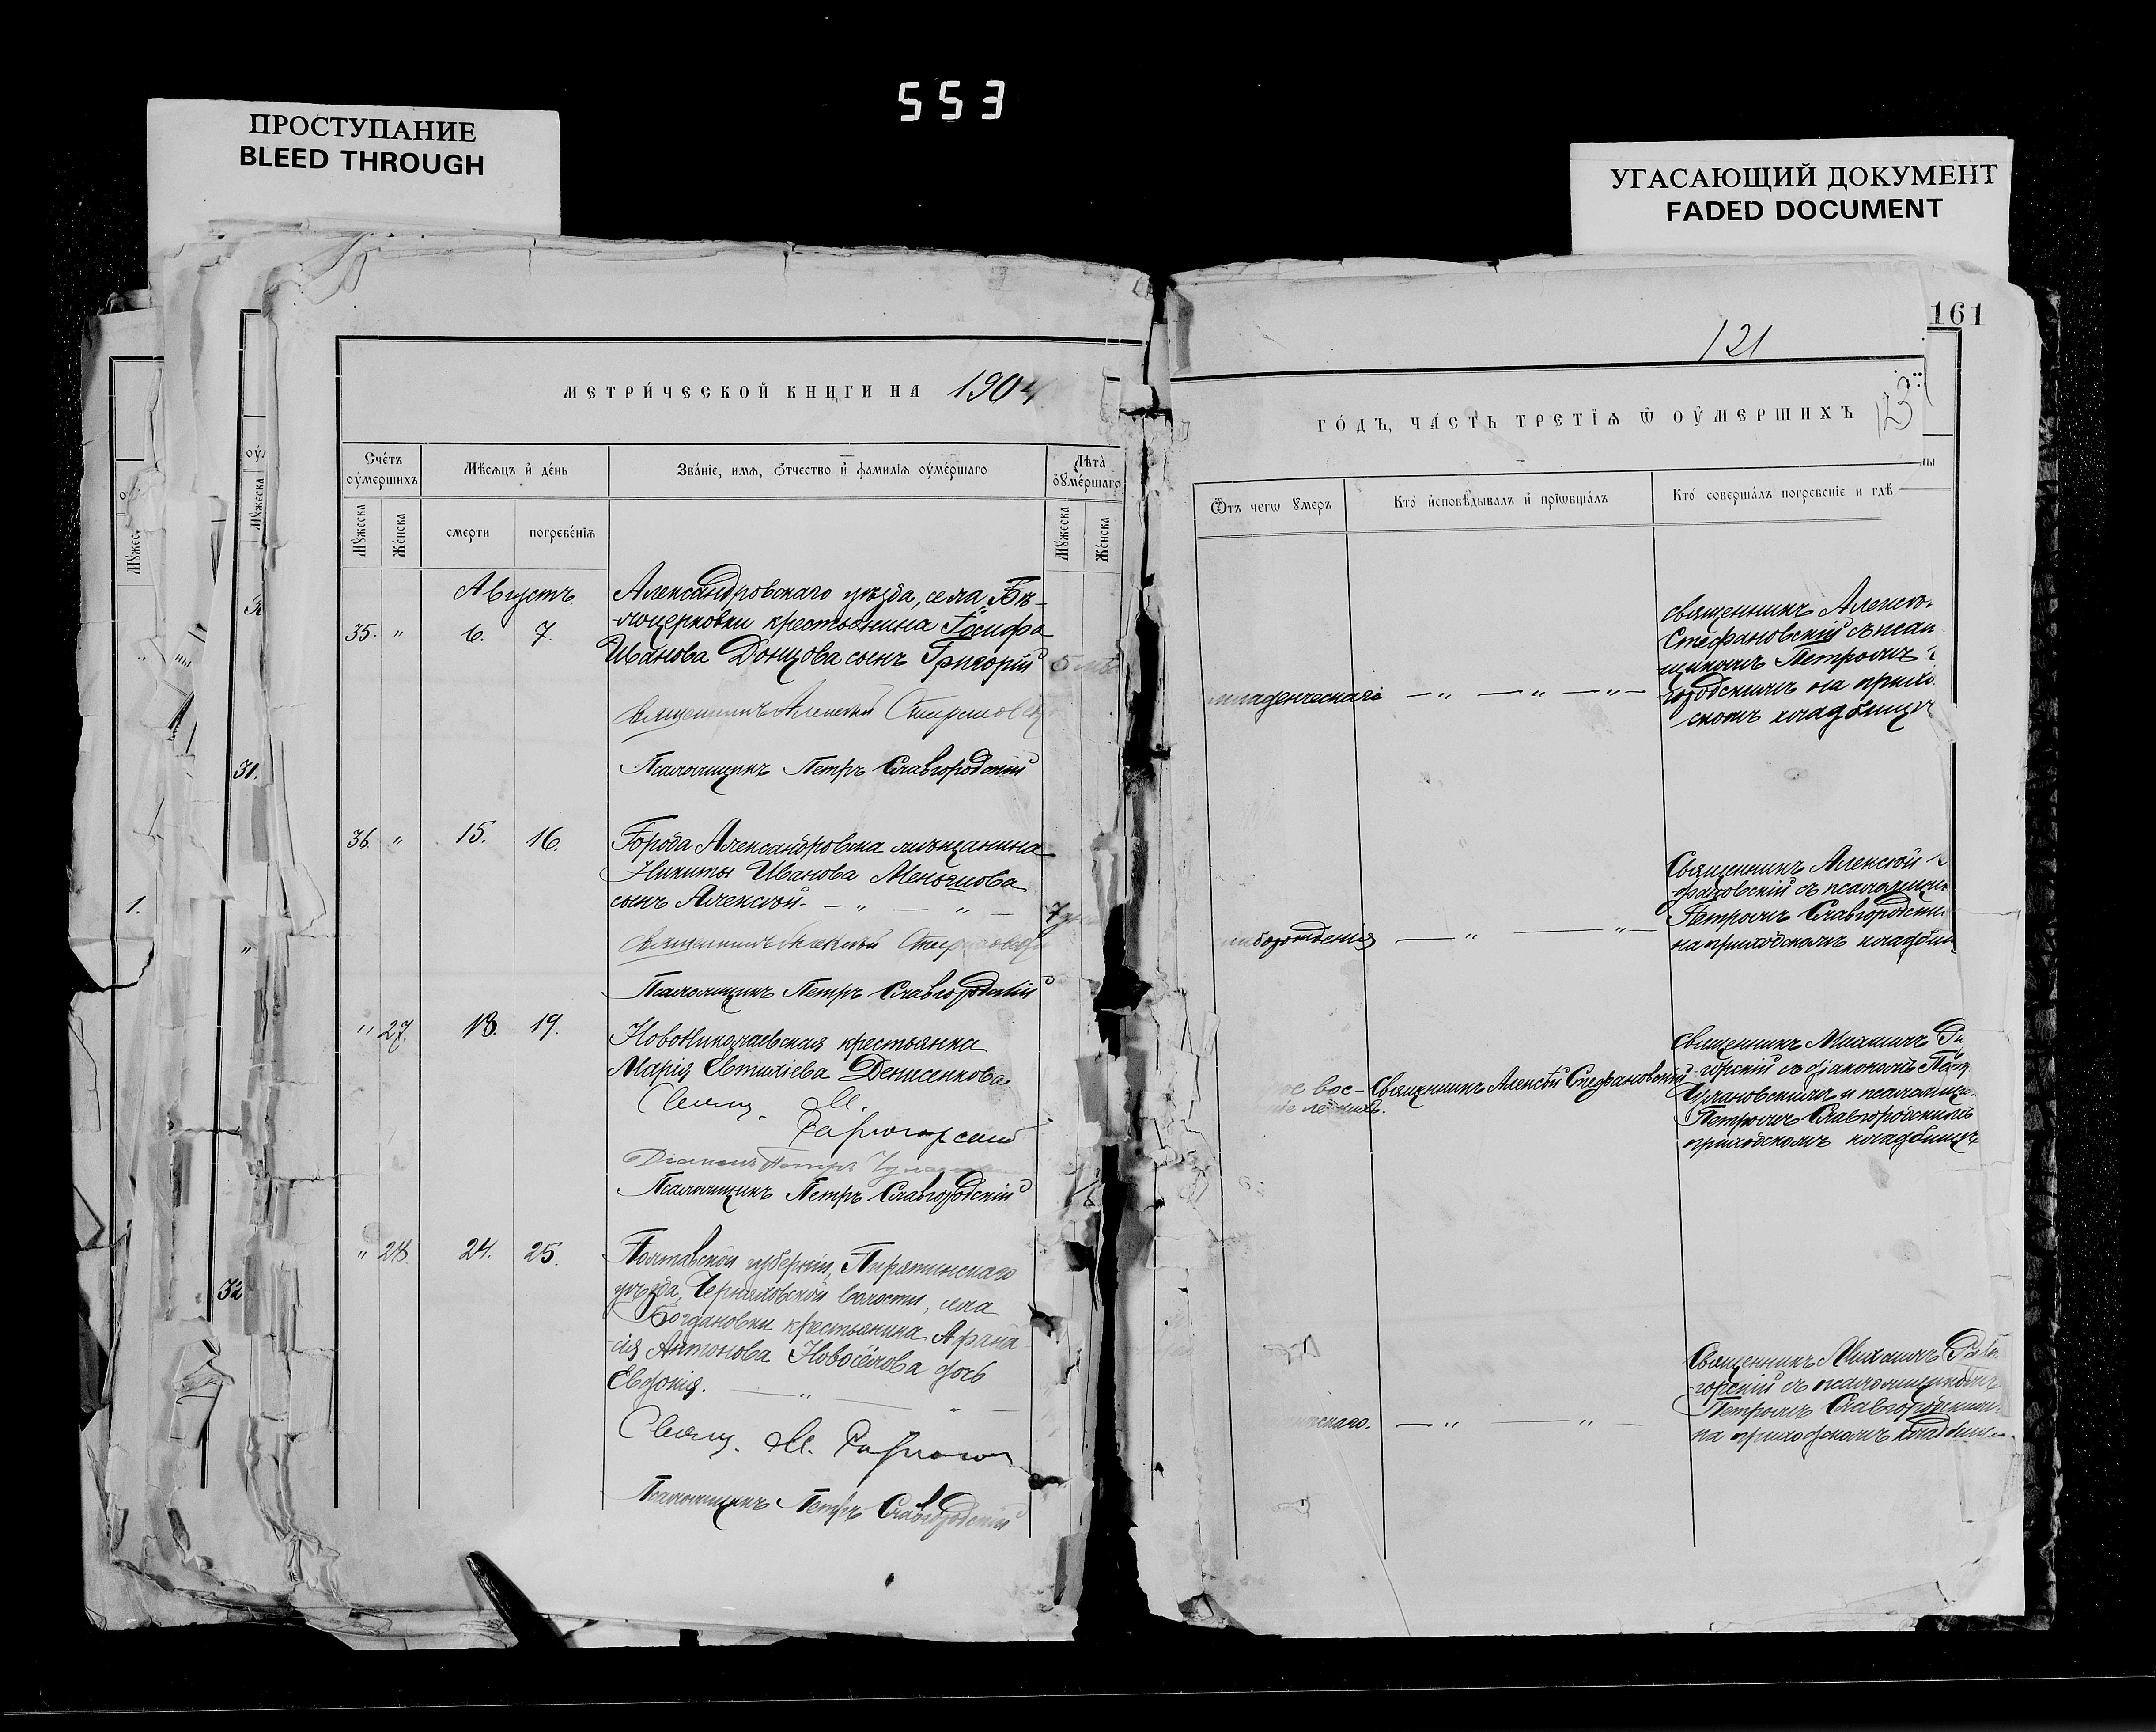 553
ПРОСТУПАНИЕ
BLEED THROUGH
УГАСАЮЩИЙ ДОКУМЕНТ
FADED DOCUMENT
161
121
МЕТРИ́ЧЕСКОЙ КНИГИ НА 1904
ГО́ДЪ, ЧА́СТЬ ТРЕТІѦ Ѿ ОУ҆МЕРШИХЪ
Сче́тъ оу҆мершихъ
Мѣсѧцъ и҆ де́нь
Зва́ніе, имѧ, ѻ҆тчество и҆ фамилїѧ оу҆ме́ршаго
Лѣта̀ ѹ҆ме́ршаго
Мꙋ́жеска
Же́нска
смерти
погребе́нїѧ
Мꙋ́жеска
Же́нска
Ѿтъ чегѡ ꙋмеръ
Кто̀ и҆сповѣ́дывалъ и҆ прїѡбща́лъ
Кто́ соверша́лъ погребеніе и гдѣ̀
Августъ
35. " 6. 7.
Александровскаго уѣзда, села Бѣ-
-лоцерковки крестьянина Іосифа
Иванова Донцова сынъ Григорій
Священникъ Алексѣй
Псаломщикъ Петръ Славгородскій
младенческаго
священникъ
Стефановскій
Петромъ
городскимъ на прихо
скомъ кладбищѣ
36 " 15. 16.
Города Александровска мѣщанина
Никиты Иванова Меньшова
сынъ Алексѣй
Священникъ Алексѣй
Псаломщикъ Петръ Славгородскій
Священникъ Алексѣй
съ псаломщик
Петромъ Славгородским
на приходскомъ кладбищ
" 27. 18. 19.
Новониколаевская крестьянка
Марія Евтихіева Денисенкова.
Свящ. М.
Діаконъ Петръ
Псаломщикъ Петръ Славгородскій
вос- Священникъ Алексѣй Стефановскій
легкихъ.
Священникъ Михаилъ
-горскій съ діакономъ
и псаломщи
Петромъ Славгородскимъ
приходскомъ кладбищѣ
" 28. 24. 25.
Полтавской губерніи, Пирятинскаго
уѣзда, Черняховской волости, села
Богдановки крестьянина Афана
-сія Антонова Новосёлова дочь
Евдокія.
Свящ. М.
Псаломщикъ Петръ Славгородскій
Священникъ Михаилъ
-горскій съ псаломщикомъ
Петромъ Славгородскимъ
на приходскомъ кладбищ
31.
32
1.